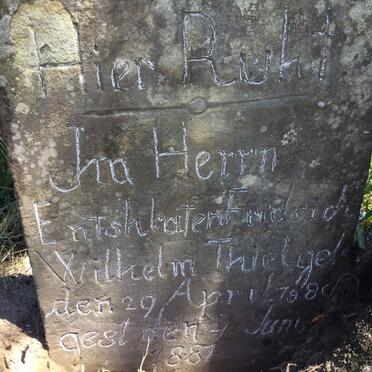 Hier Ruht
Im Herrn
Entshlafen Fridrich
Wilhelm Thiel geb
den 29 April
gest den Juni